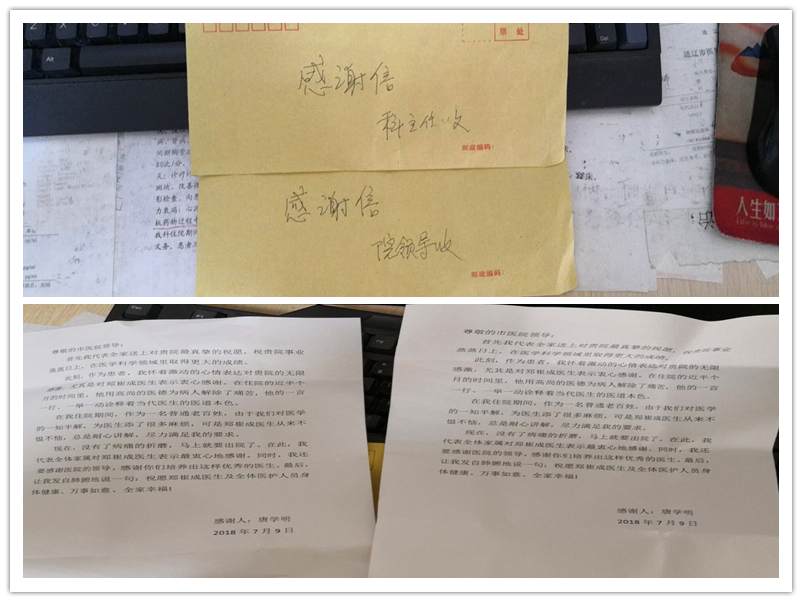 票 处
Alt
感谢信
科主任收
邮政编码：
人生如
感谢信
院领导收
邮政编码：
尊敬的市医院领导：
首先我代表全家送上对贵院最真挚的祝愿，祝贵院事业
蒸蒸日上，在医学科学领域里取得更大的成绩。
此刻，作为患者，我怀着激动的心情表达对贵院的无限
感激，尤其是对郑崔成医生表示衷心感谢，在住院的近半个
月的时间里，他用高尚的医德为病人解除了痛苦，他的一言
一行、一举一动诠释着当代医生的医道本色。
在我住院期间，作为一名普通老百姓，由于我们对医学
的一知半解，为医生添了很多麻烦，可是郑崔成医生从来不
愠不恼，总是耐心讲解，尽力满足我的要求。
现在，没有了病痛的折磨，马上就要出院了，在此，我
代表全体家属对郑崔成医生表示最衷心地感谢。同时，我还
要感谢医院的领导，感谢你们培养出这样优秀的医生。最后，
让我发自肺腑地说一句：祝愿郑崔成医生及全体医护人员身
体健康、万事如意、全家幸福！
感谢人：唐学明
2018 年 7 月 9 日
尊敬的市医院领导：
首先我代表全家送上对贵院最真挚的祝愿，祝贵院事业
蒸蒸日上，在医学科学领域里取得更大的成绩。
此刻，作为患者，我怀着激动的心情表达对贵院的无限
感激，尤其是对郑崔成医生表示衷心感谢，在住院的近半个
月的时间里，他用高尚的医德为病人解除了痛苦，他的一言
一行、一举一动诠释着当代医生的医道本色。
在我住院期间，作为一名普通老百姓，由于我们对医学
的一知半解，为医生添了很多麻烦，可是郑崔成医生从来不
愠不恼，总是耐心讲解，尽力满足我的要求。
现在，没有了病痛的折磨，马上就要出院了，在此，我
代表全体家属对郑崔成医生表示最衷心地感谢。同时，我还
要感谢医院的领导，感谢你们培养出这样优秀的医生。最后，
让我发自肺腑地说一句：祝愿郑崔成医生及全体医护人员身
体健康、万事如意、全家幸福！
感谢人：唐学明
2018 年 7 月 9 日